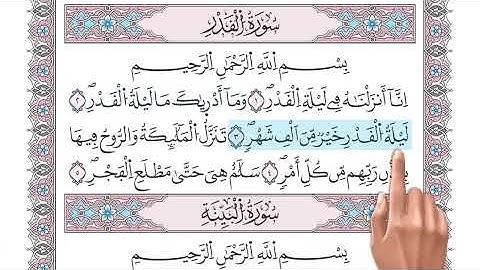 سُورَةُ الْقَدْرِ
بِسْمِ اللّٰهِ الرَّحْمٰنِ الرَّحِيمِ
اِنَّٓا اَنْزَلْنَاهُ فِي لَيْلَةِ الْقَدْرِۚ ﴿١﴾ وَمَٓا اَدْرٰيكَ مَا لَيْلَةُ الْقَدْرِۜ ﴿٢﴾
لَيْلَةُ الْقَدْرِ خَيْرٌ مِنْ اَلْفِ شَهْرٍۜ ﴿٣﴾ تَنَزَّلُ الْمَلٰٓئِكَةُ وَالرُّوحُ فِيهَا
رَبِّهِمْ مِنْ كُلِّ اَمْرٍۛ ﴿٤﴾ سَلَامٌ هِيَ حَتّٰى مَطْلَعِ الْفَجْرِ ﴿٥﴾
سُورَةُ الْبَيِّنَةِ
بِسْمِ اللّٰهِ الرَّحْمٰنِ الرَّحِيمِ